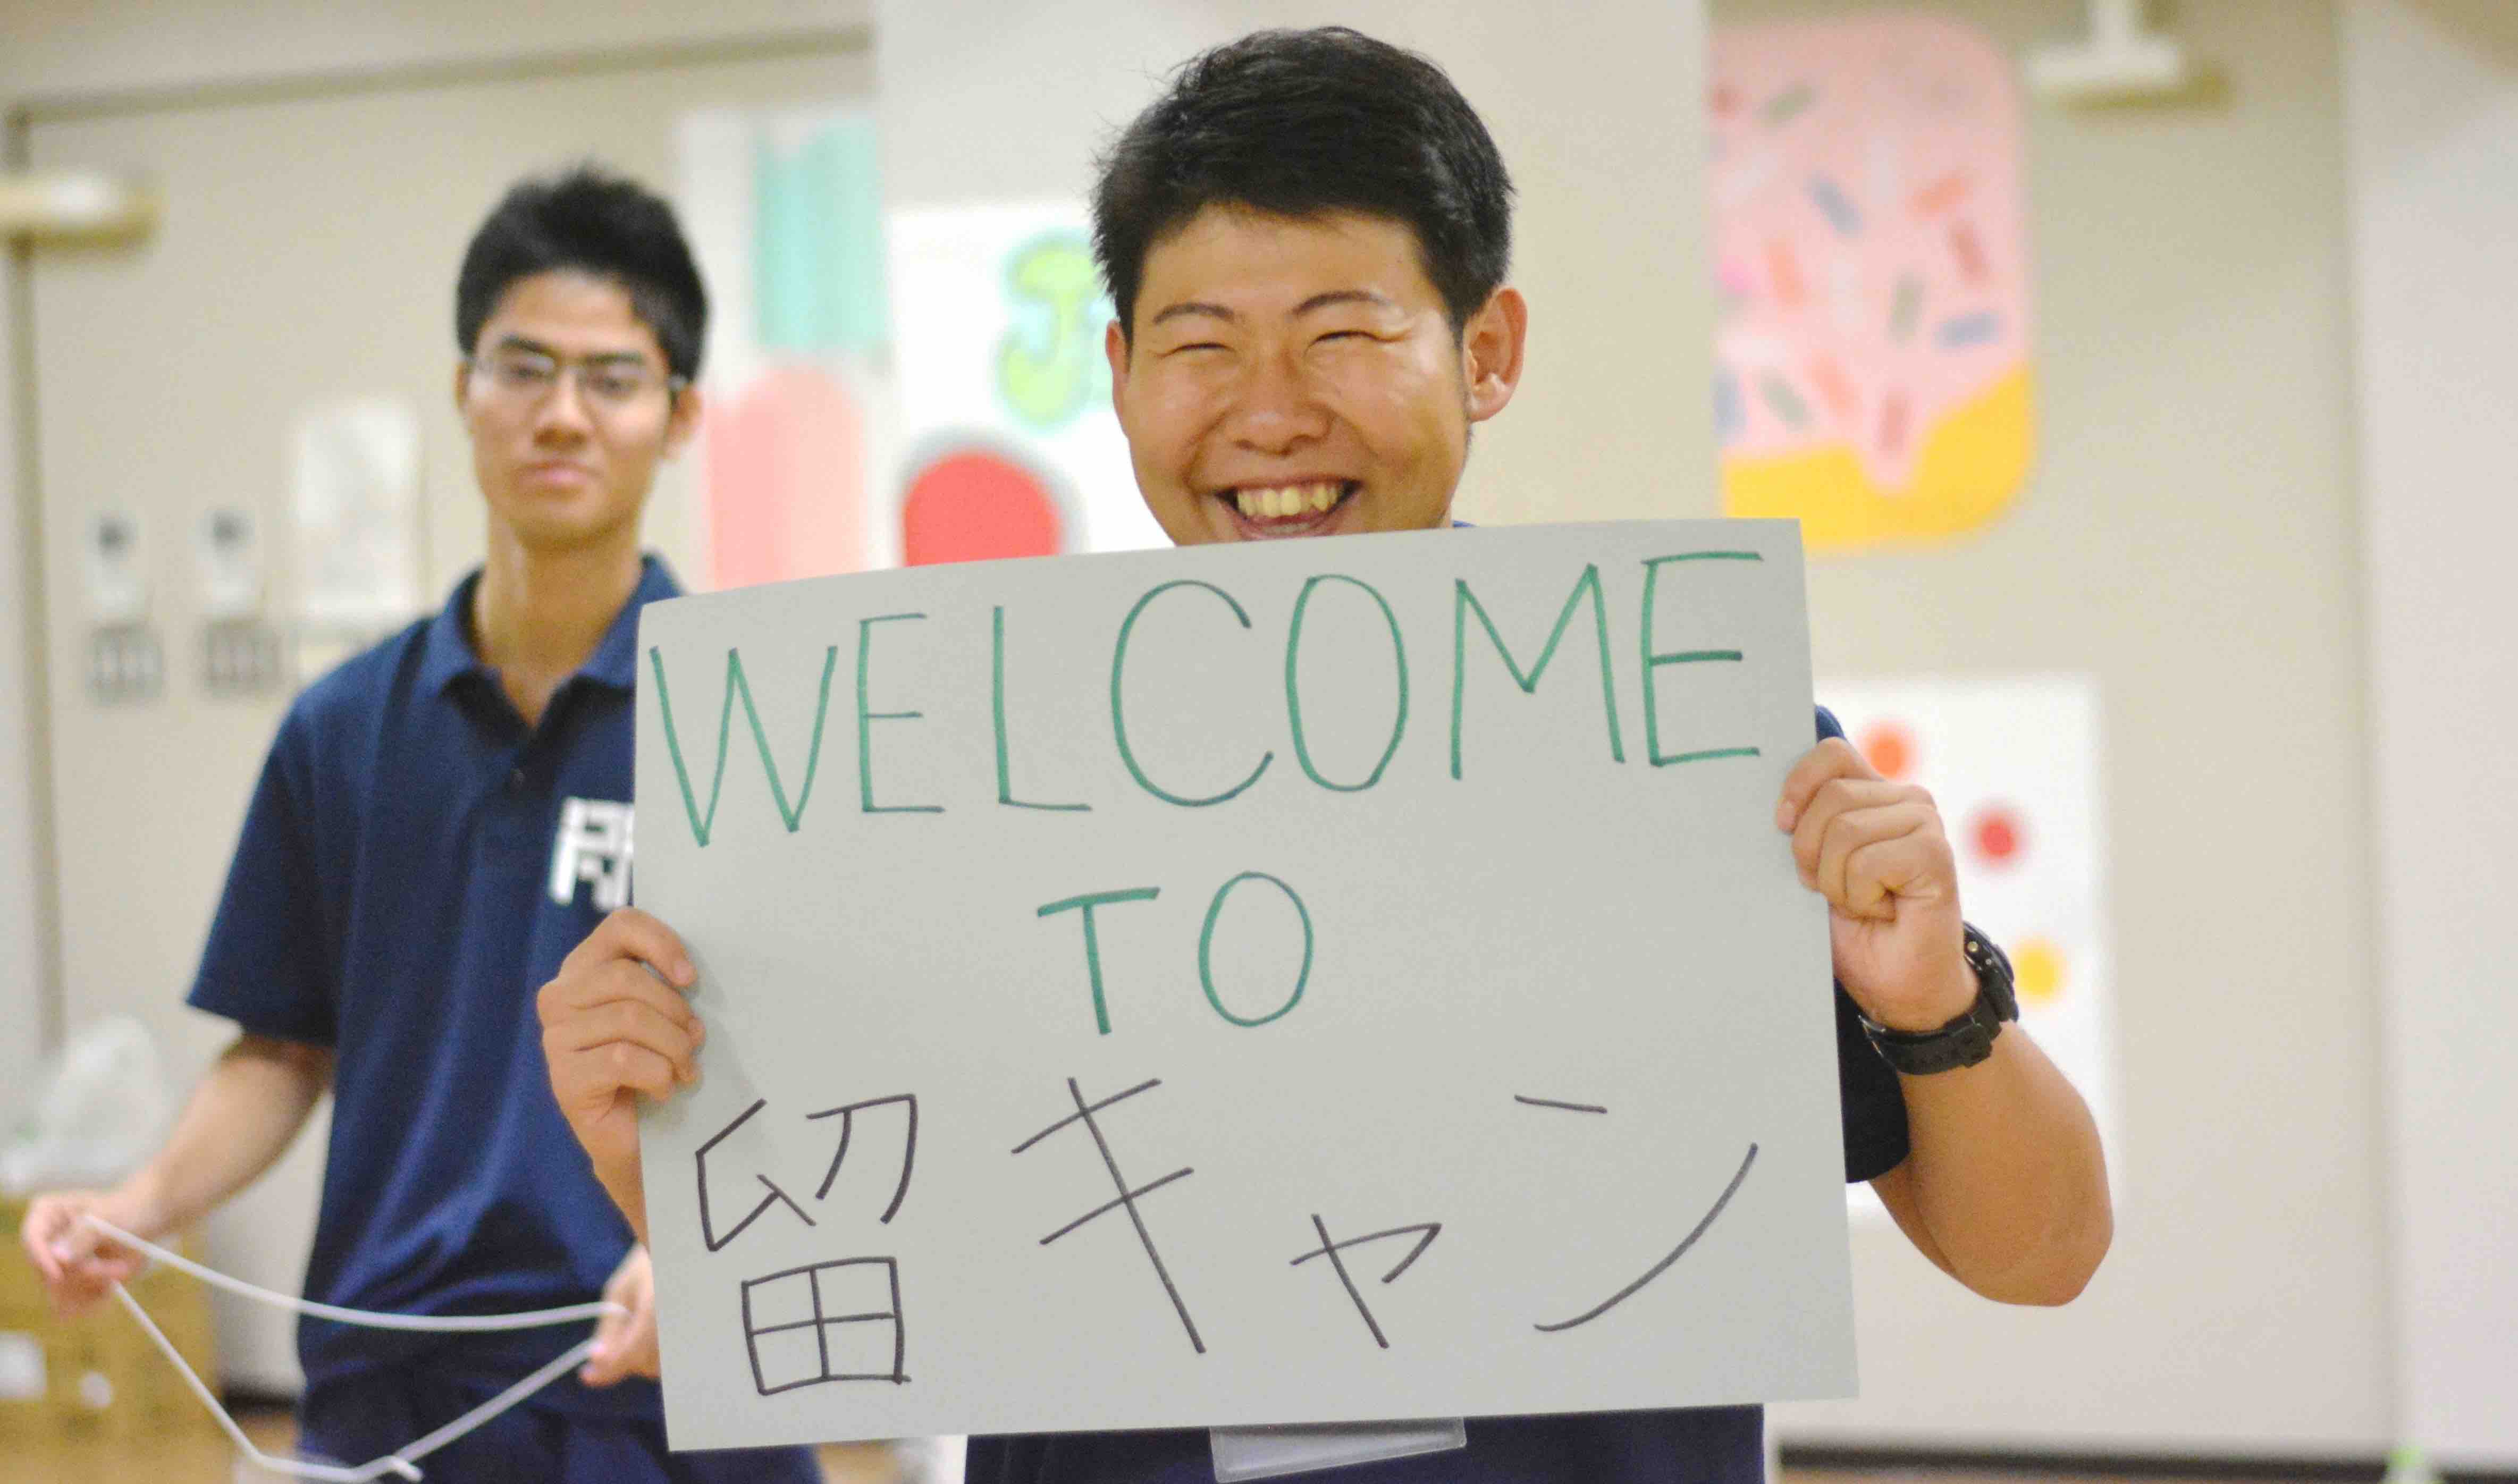 WELCOME
TO
留キャン